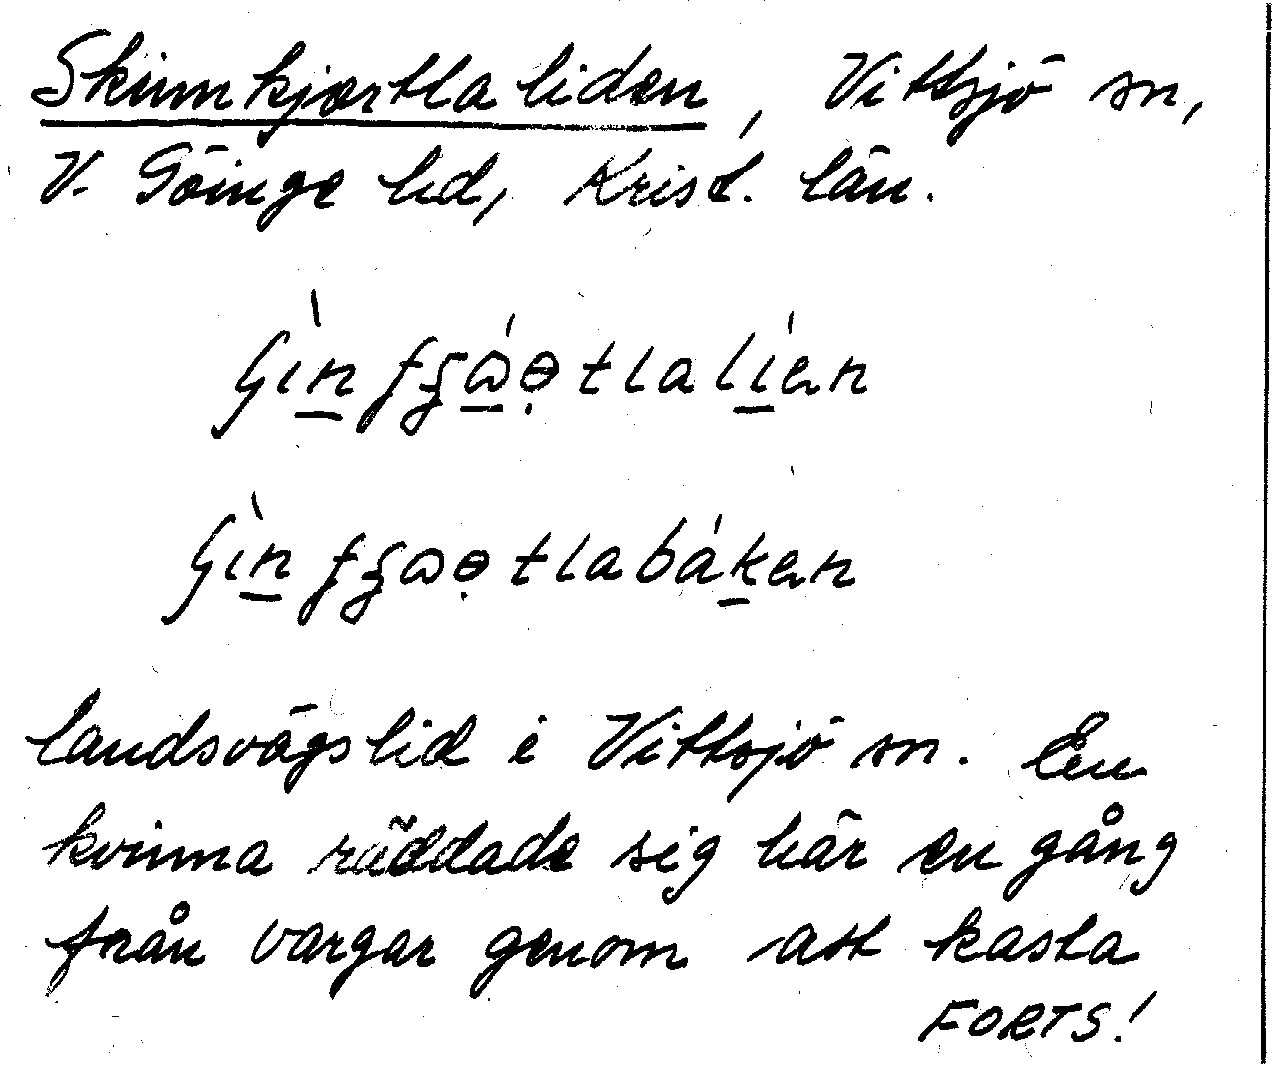 Skinnkjortlaliden, Vittsjö sn,
V. Göinge hd, Krist. län.
landsvägslid i Vittsjö sn. En
kvinna räddade sig här en gång
från vargar genom att kasta
FORTS!